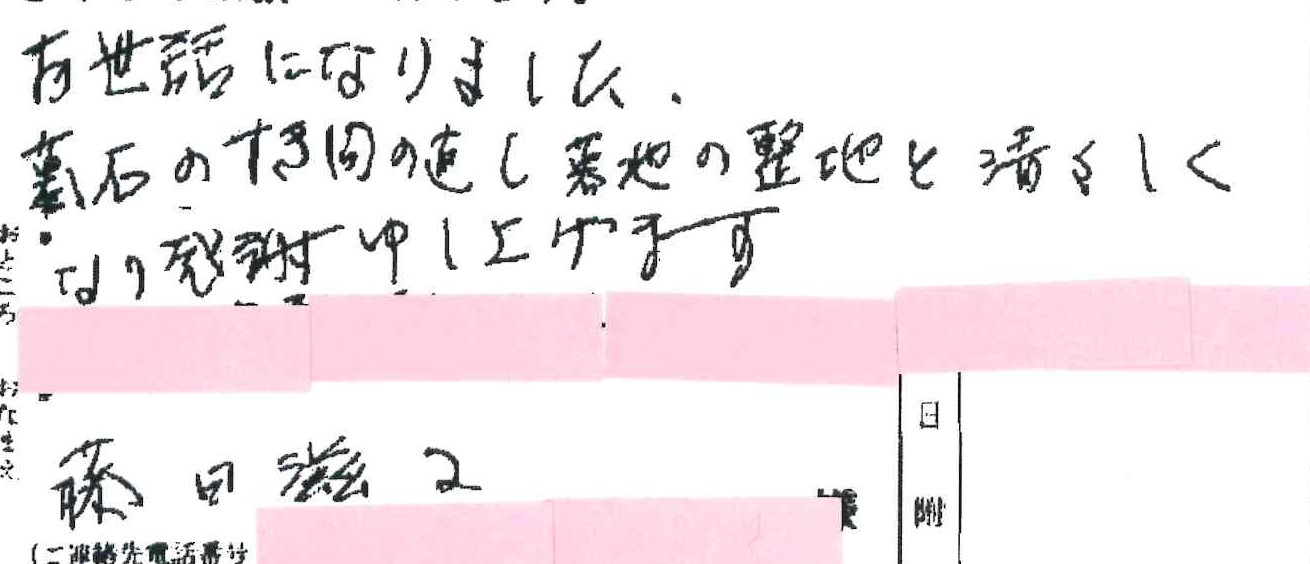 お世話になりました.
墓石のすき間の直し墓地の整地と清々しく
なり感謝申し上げます
おところ
おなまえ
藤田滋
様
日附
(ご連絡先電話番号